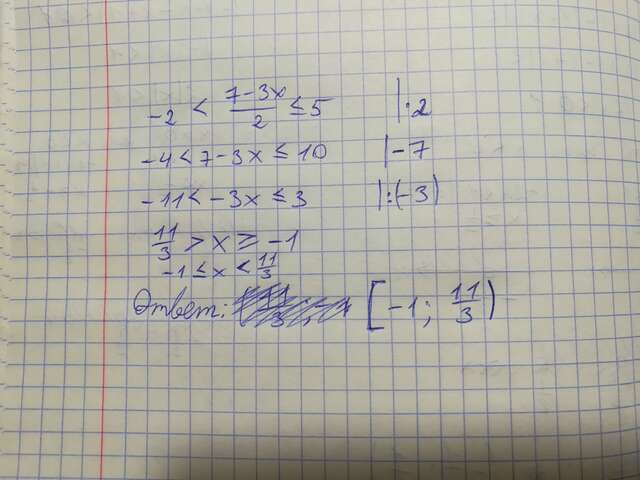 -2 < (7-3x)/2 ≤ 5 |·2
-4 < 7-3x ≤ 10 |-7
-11 < -3x ≤ 3 |:(-3)
11/3 > x ≥ -1
-1 ≤ x < 11/3
Ответ: [-1; 11/3)